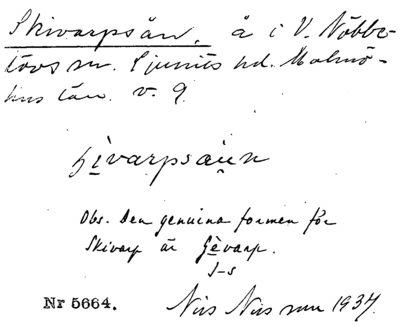 Skivarpsån, å i V. Nöbbe-
lövs sn. Ljunits hd. Malmö-
hus län. v. 9.
hèvarpsäun
Obs. Den genuina formen för
Skivarp är Gèvarp.
J-s
Nr 5664. Nils Nilsson 1937.